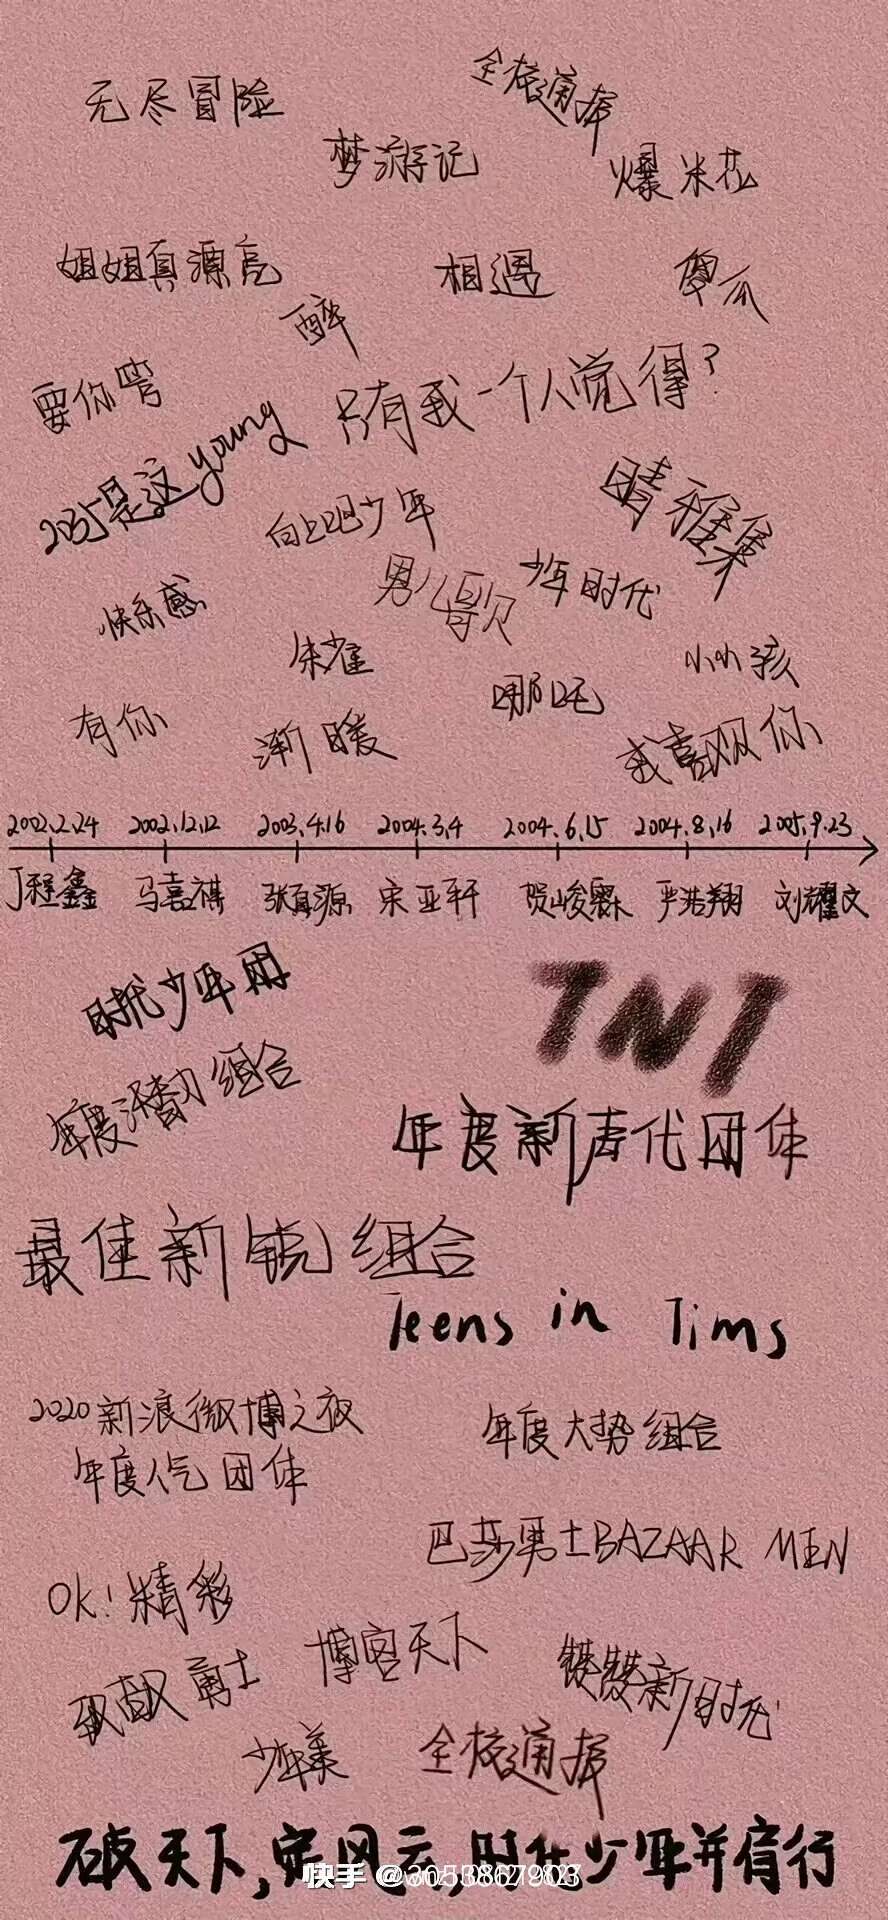 无尽冒险
全校通报
梦游记
爆米花
姐姐真源亮
相遇
傻瓜
醉
要你管
只有我一个人觉得？
2035是这young
向上吧少年
晴雅集
男儿歌
少年时代
快乐感
朱雀
小小孩
哪吒
有你
渐暖
我喜欢你
2002.2.24 2002.12.12 2003.4.16 2004.3.4 2004.6.15 2004.8.16 2005.9.23
丁程鑫 马嘉祺 张真源 宋亚轩 贺峻霖 严浩翔 刘耀文
时代少年团
TNT
年度潜力组合
年度新声代团体
最佳新锐组合
Teens in Tims
2020新浪微博之夜
年度人气团体
年度大势组合
巴莎男士BAZAAR MEN
OK！精彩
博客天下
勇士
新时代
少年美
全校通报
破天下，定风云，时代少年并肩行
快手